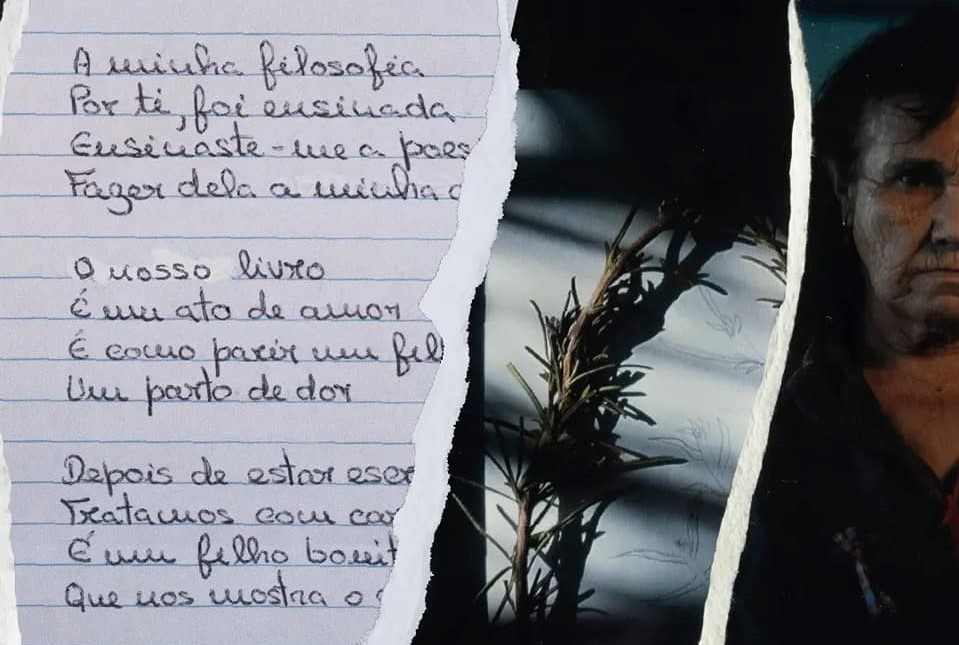 A minha filosofia
Por ti, foi ensinada
Ensinaste-me a poes
Fazer dela a minha
O nosso livro
É um ato de amor
É como parir um fil
Um parto de dor
Depois de estar escr
Tratamos com car
É um filho bonit
Que nos mostra o